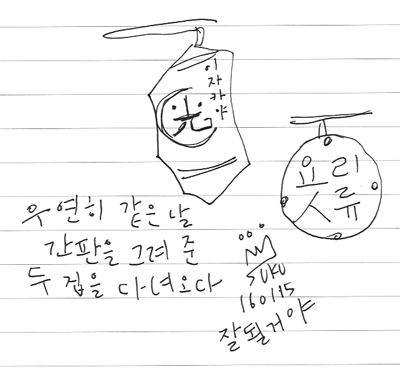 이자카야
光
욧류
우연히 같은 날
간판을 그려 준
두 집을 다녀오다
SUKU
160115
잘될거야